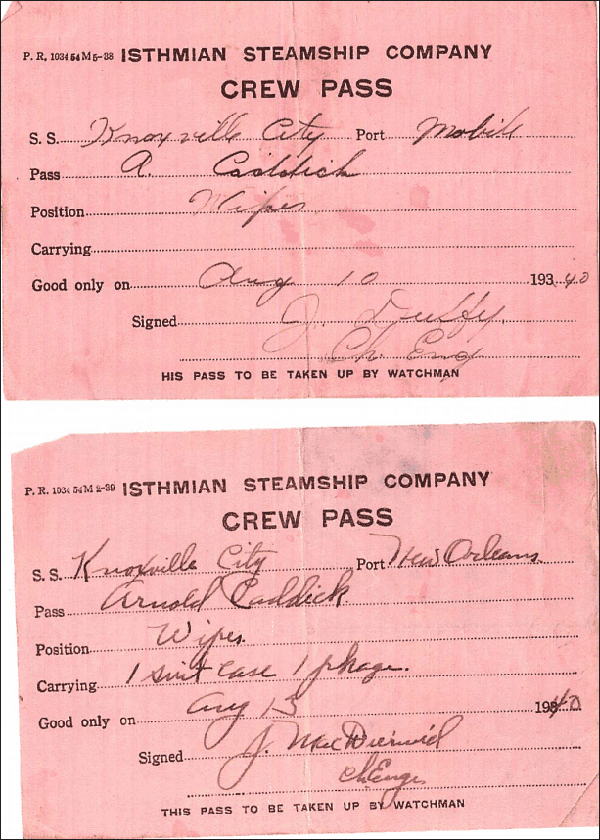 P. R. 1034 54 M 5-38 ISTHMIAN STEAMSHIP COMPANY
CREW PASS
S. S. Knoxville City Port Mobile
Pass A. Caddick
Position Wiper
Carrying
Good only on Aug 10 193 40
Signed J. Duffy
Ch. Eng
HIS PASS TO BE TAKEN UP BY WATCHMAN
P. R. 1034 54 M 2-39 ISTHMIAN STEAMSHIP COMPANY
CREW PASS
S. S. Knoxville City Port New Orleans
Pass Arnold Caddick
Position Wiper
Carrying 1 suit case 1 pkage.
Good only on Aug 13 40
Signed J.
Ch Engr
THIS PASS TO BE TAKEN UP BY WATCHMAN